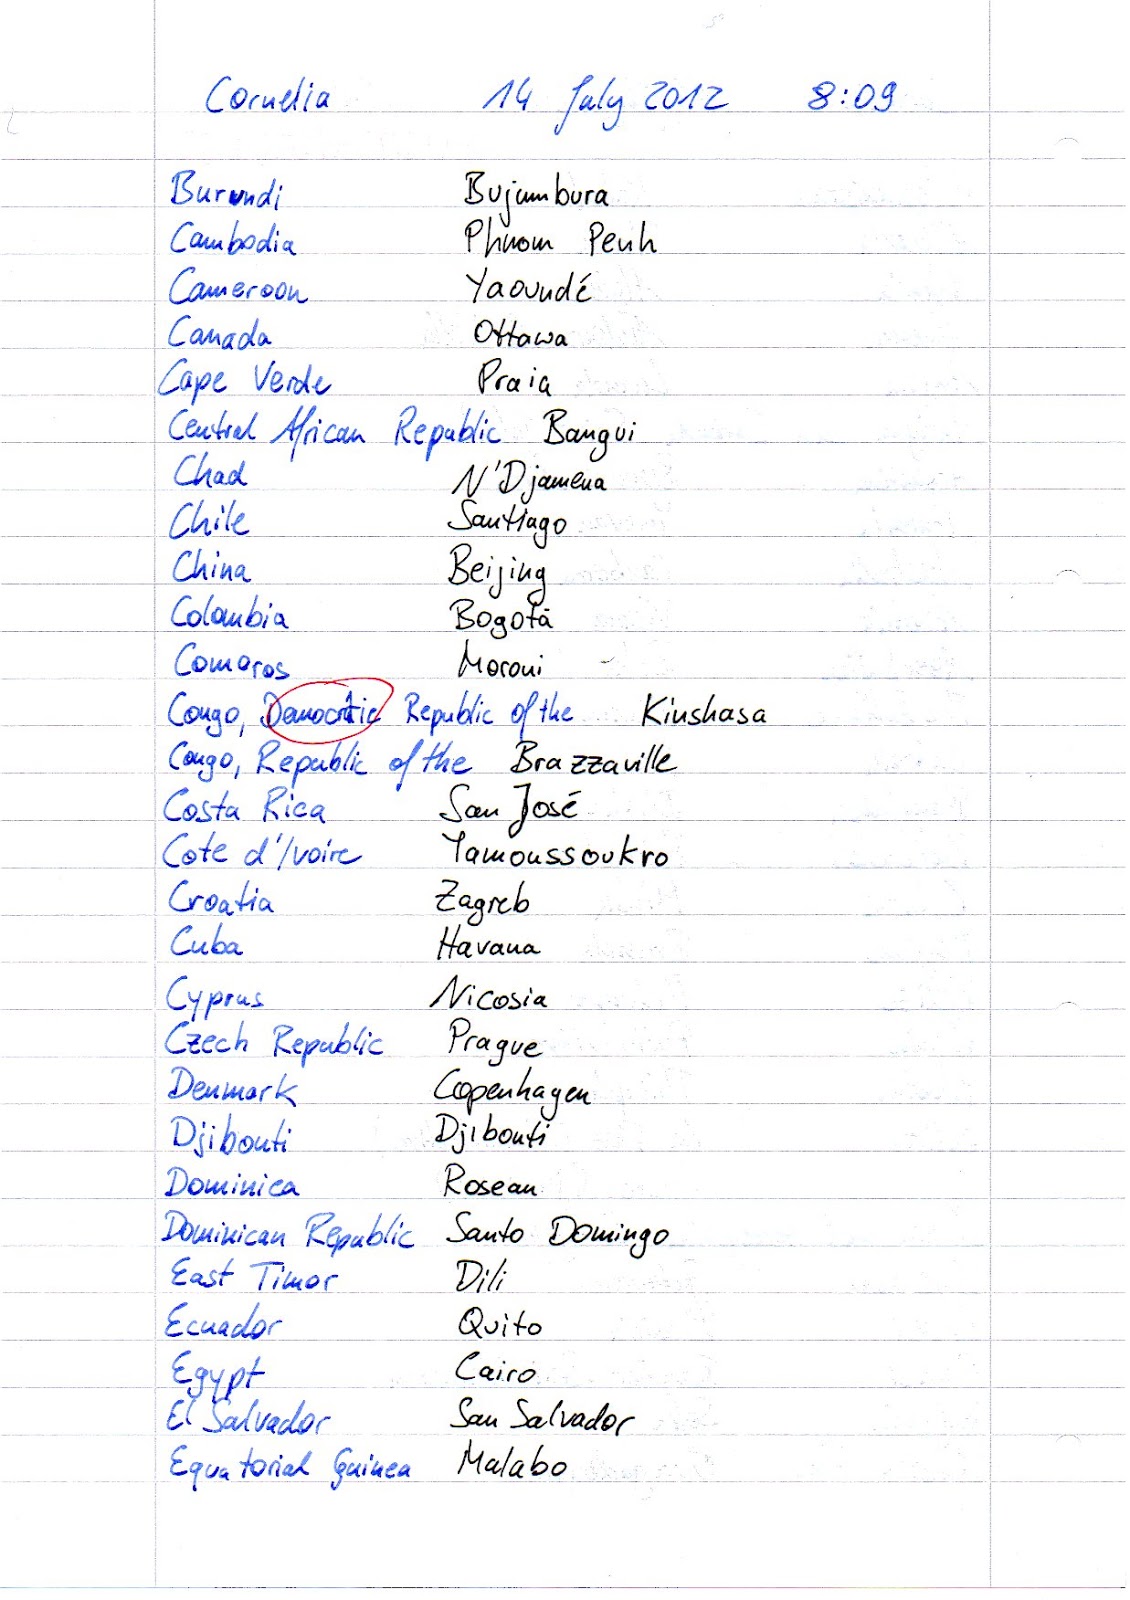 Cornelia 14 July 2012 8:09
Burundi Bujumbura
Cambodia Phnom Penh
Cameroon Yaoundé
Canada Ottawa
Cape Verde Praia
Central African Republic Bangui
Chad N'Djamena
Chile Santiago
China Beijing
Colombia Bogotá
Comoros Moroni
Congo, Democratic Republic of the Kinshasa
Congo, Republic of the Brazzaville
Costa Rica San José
Cote d'Ivoire Yamoussoukro
Croatia Zagreb
Cuba Havana
Cyprus Nicosia
Czech Republic Prague
Denmark Copenhagen
Djibouti Djibouti
Dominica Roseau
Dominican Republic Santo Domingo
East Timor Dili
Ecuador Quito
Egypt Cairo
El Salvador San Salvador
Equatorial Guinea Malabo